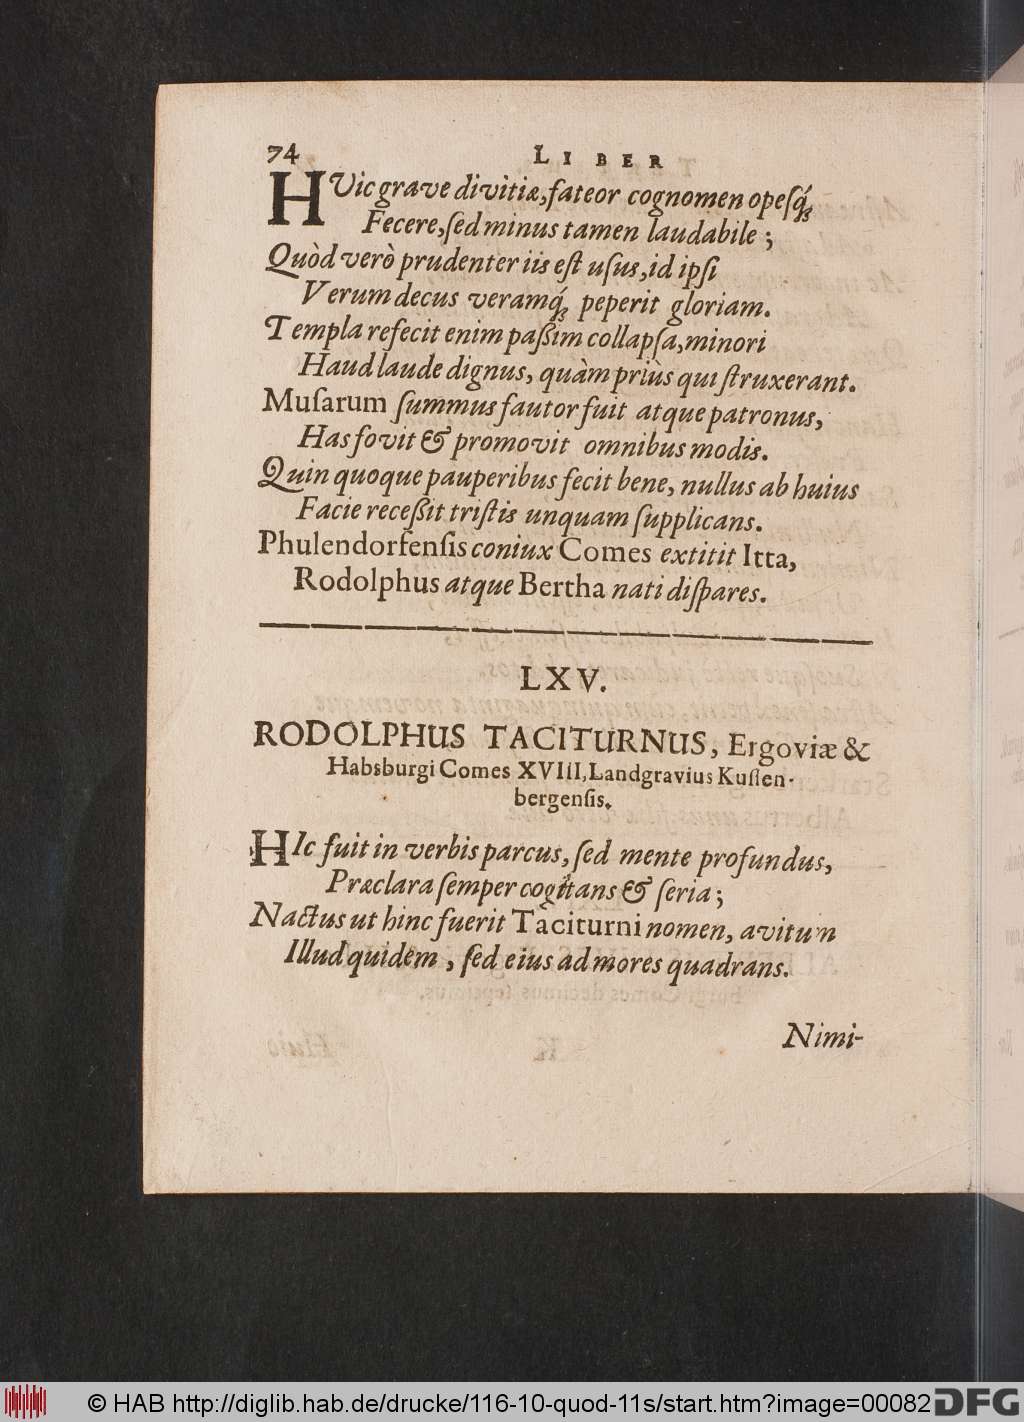 74 LIBER
HVic grave divitiæ, fateor cognomen opesq́;
Fecere, sed minus tamen laudabile;
Quòd verò prudenter iis est usus, id ipsi
Verum decus veramq́; peperit gloriam.
Templa refecit enim paßim collapsa, minori
Haud laude dignus, quàm priùs qui struxerant.
Musarum summus fautor fuit atque patronus,
Has fovit & promovit omnibus modis.
Quin quoque pauperibus fecit bene, nullus ab huius
Facie receßit tristis unquam supplicans.
Phulendorfensis coniux Comes extitit Itta,
Rodolphus atque Bertha nati dispares.
LXV.
RODOLPHUS TACITURNUS, Ergoviæ &
Habsburgi Comes XVIII, Landgravius Kussen-
bergensis.
HIc fuit in verbis parcus, sed mente profundus,
Præclara semper cogitans & seria;
Nactus ut hinc fuerit Taciturni nomen, avitum
Illud quidem, sed eius ad mores quadrans.
Nimi-
© HAB http://diglib.hab.de/drucke/116-10-quod-11s/start.htm?image=00082 DFG